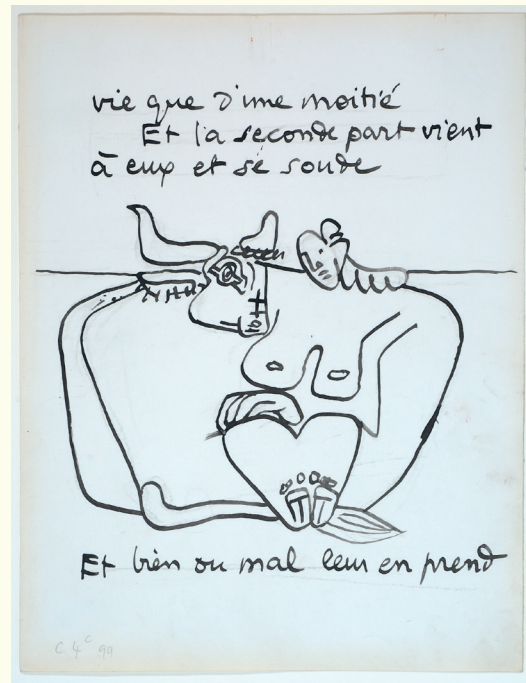 vie que d'une moitié
Et la seconde part vient
à eux et se soude
Et bien ou mal leur en prend
C 4 c 99